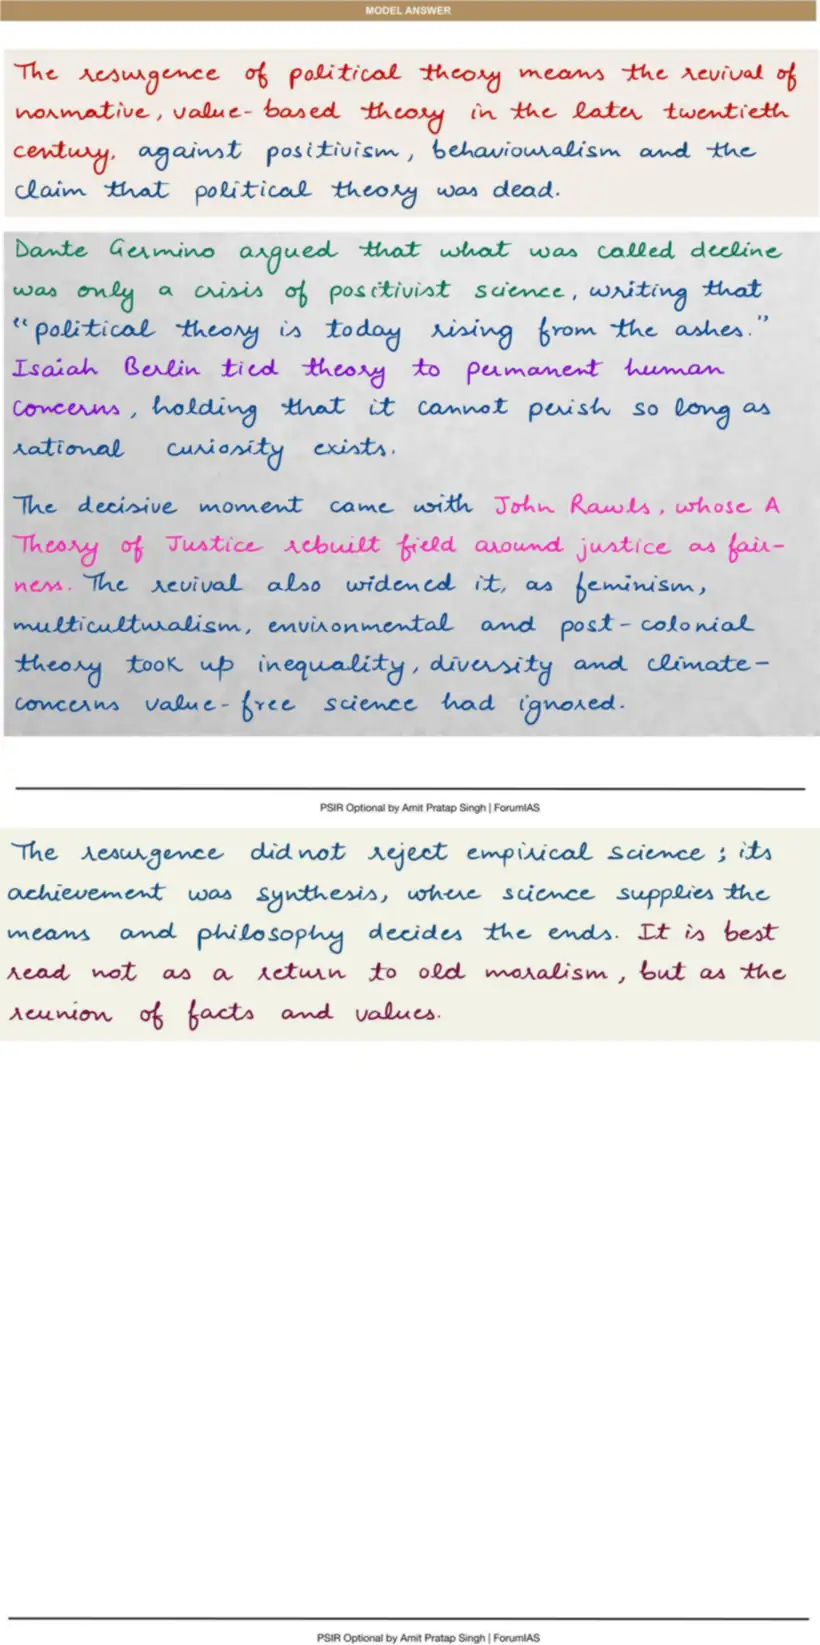 MODEL ANSWER
The resurgence of political theory means the revival of
normative, value-based theory in the later twentieth
century, against positivism, behaviouralism and the
claim that political theory was dead.
Dante Germino argued that what was called decline
was only a crisis of positivist science, writing that
"political theory is today rising from the ashes."
Isaiah Berlin tied theory to permanent human
concerns, holding that it cannot perish so long as
rational curiosity exists.
The decisive moment came with John Rawls, whose A
Theory of Justice rebuilt field around justice as fair-
ness. The revival also widened it, as feminism,
multiculturalism, environmental and post-colonial
theory took up inequality, diversity and climate-
concerns value-free science had ignored.
PSIR Optional by Amit Pratap Singh | ForumIAS
The resurgence did not reject empirical science; its
achievement was synthesis, where science supplies the
means and philosophy decides the ends. It is best
read not as a return to old moralism, but as the
reunion of facts and values.
PSIR Optional by Amit Pratap Singh | ForumIAS